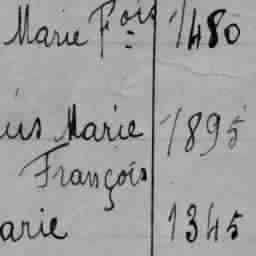 Marie Fois 1480
us Marie 1895
François
arie 1345